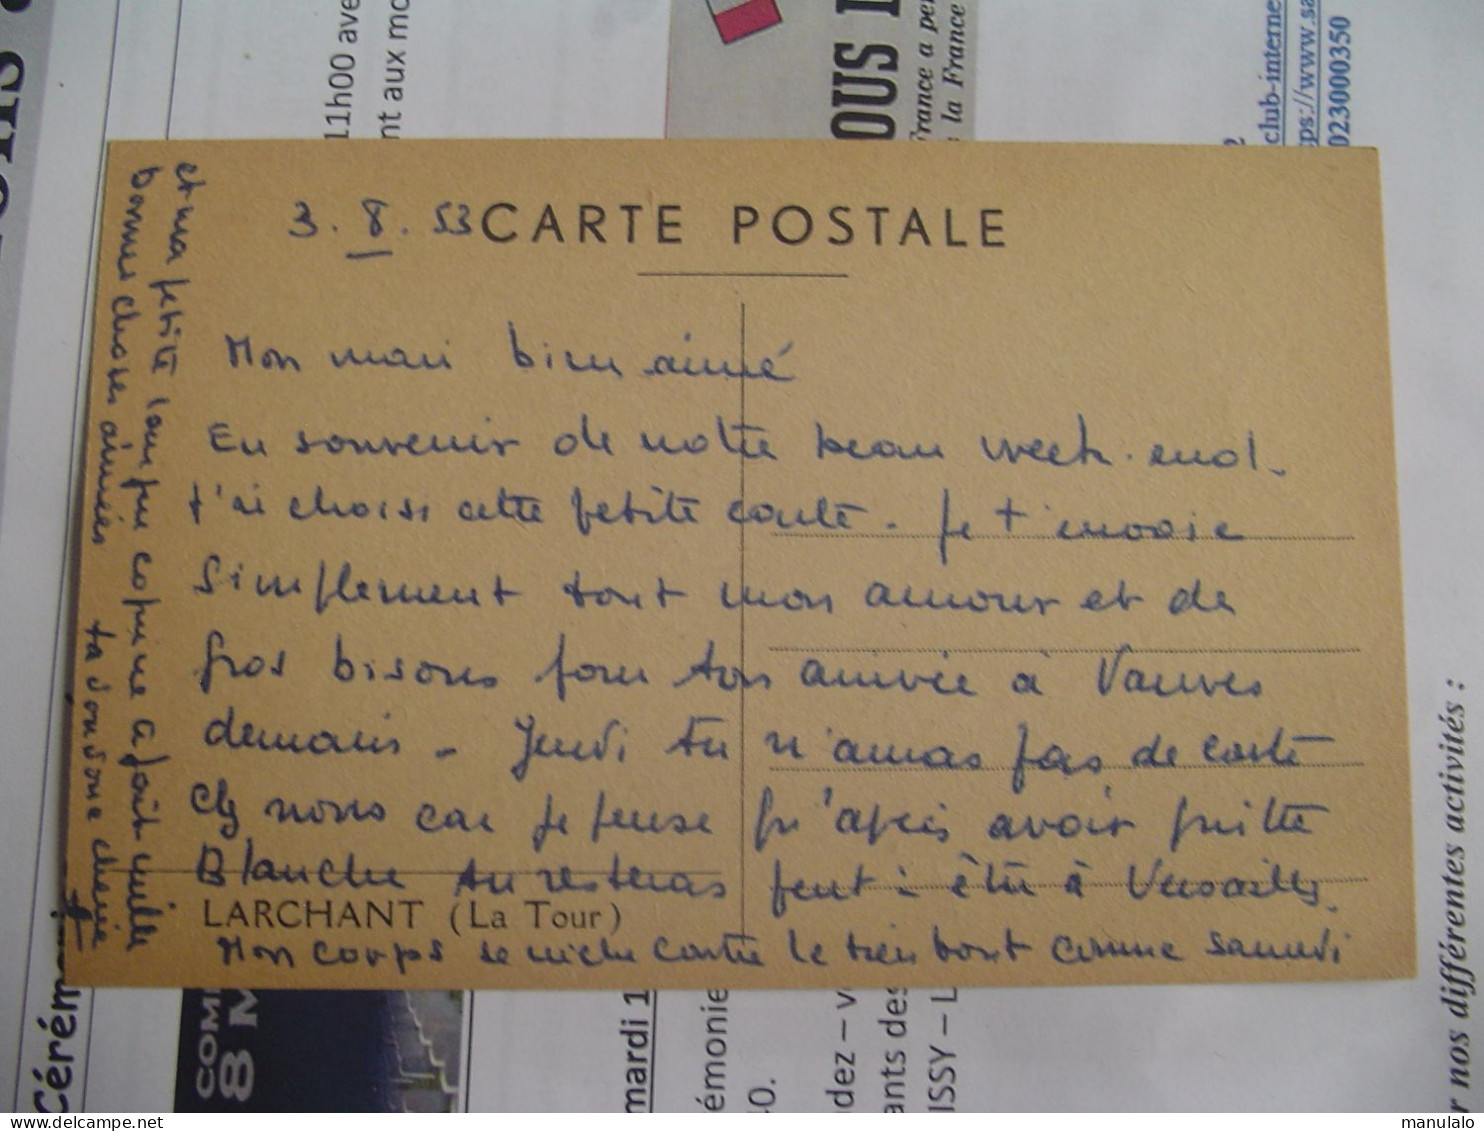 3.8.53 CARTE POSTALE
Mon mari bien aimé
En souvenir de notre beau week-end.
t'ai choisi cette petite carte. Je t'envoie
Simplement tout mon amour et de
gros bisous pour ton arrivée à Vanves
demain - Jeudi tu n'auras pas de carte
chez nous car je pense qu'après avoir quitté
Blanche tu resteras peut-être à Versailles.
LARCHANT (La Tour)
Mon corps se niche contre le tien tout comme samedi
et ma petite copine a fait mille
bonnes choses aimées ta chérie
11h00 ave
nt aux mo
OUS
France a per
la France
club-interne
sps://www.sa
023000350
r nos différentes activités :
Cérémoni
COM
8 M
mardi 1
émonie
dez – v
ants des
ISSY – L